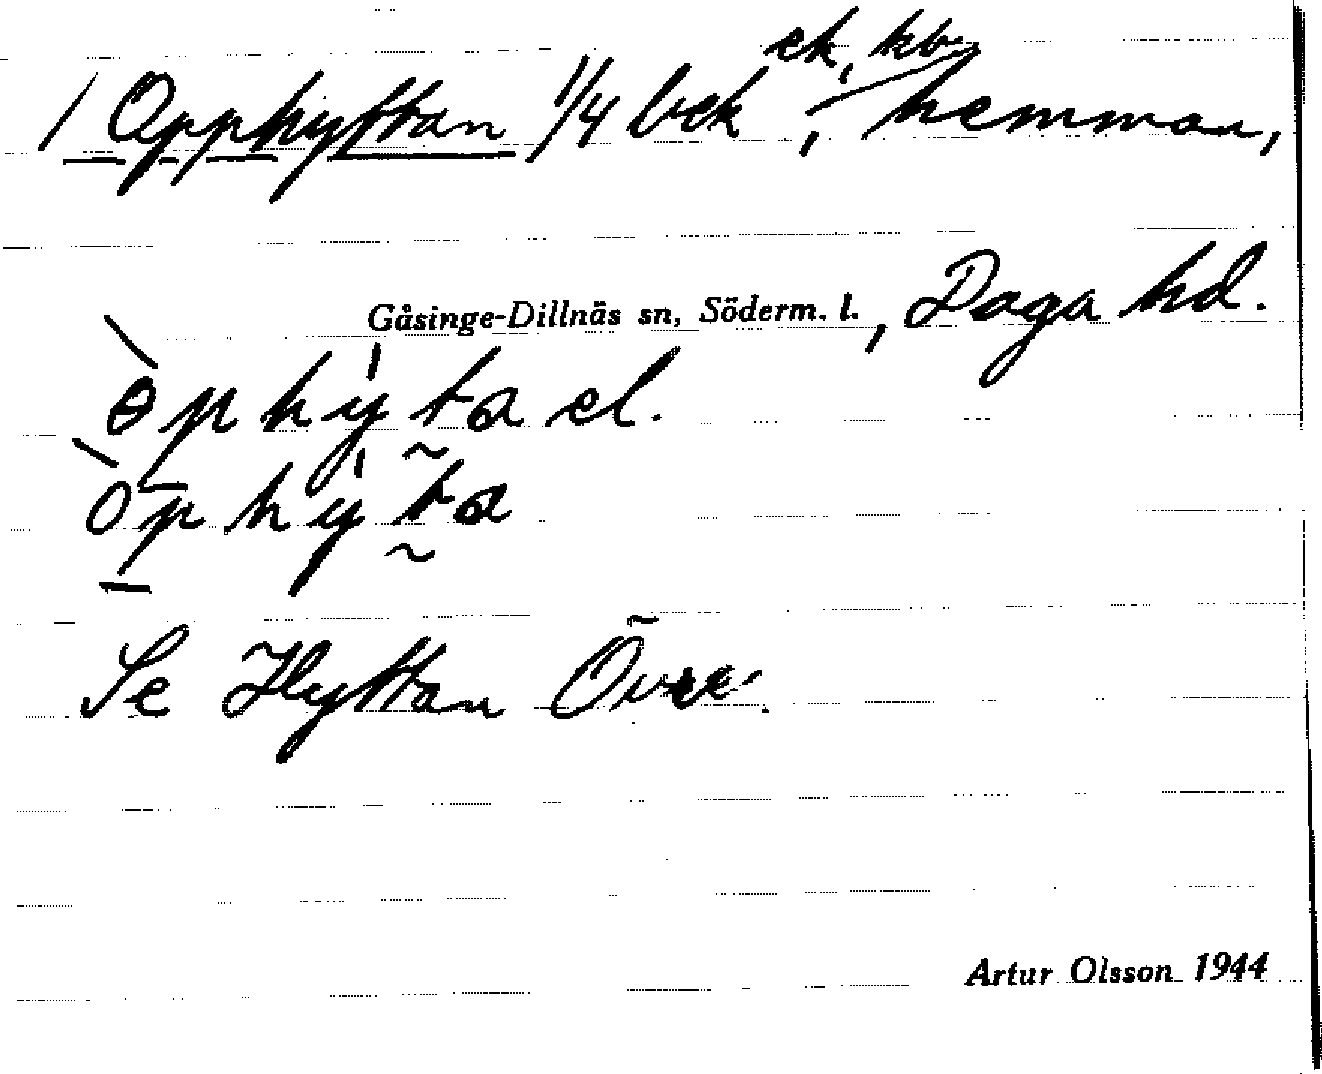 ek, kb.
1 Opphyttan 1/4 bek, hemman,
Gåsinge-Dillnäs sn, Söderm. l., Daga hd.
ɵ̀phýta el.
òphýta
Se Hyttan Övre.
Artur Olsson 1944